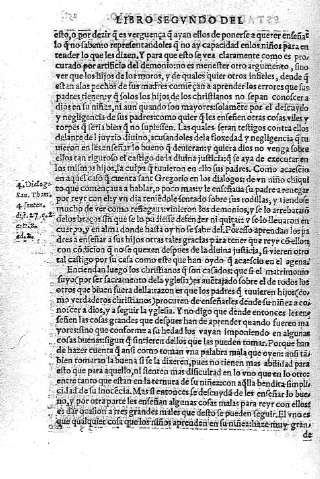 LIBRO SEGVNDO DEL
esto, o por dezir q̃ es verguença q̃ ayan ellos de ponerse a querer enseñar
lo q̃ no sabemos representandoles q̃ no ay capacidad en los niños para en
tender lo que les dizen. Y para que esto se vea claramente como es pro
curado por artificio del demonio no es menester otro argumento, sino
ver que los hijos de los moros, y de quales quier otros infieles, desde q̃
estan alos pechos de sus madres comiẽçan a aprender los errores que sus
padres tienen y q̃ solos los hijos de los christianos no sepan conoscer a
dios en su niñez, ni aun quando son mayores: solamẽte por el descuydo
y negligencia de sus padres: como quier q̃ les enseñen otras cosas viles y
torpes q̃ seria biẽ q̃ no supiessen. Las quales seran testigos contra ellos
delante del juyzio diuino, acusandoles dela soberdad y negligencia q̃ tu
uieron en les enseñar lo bueno q̃ deuieran: y quiera dios no venga sobre
ellos tan riguroso el castigo de la diuina justicia q̃ se aya de executar en
los mismos hijos, la culpa q̃ tuuieron en ello sus padres. Como acaescio
en aquel caso q̃ cuenta sant Gregorio en los dialogos: de vn niño chiqui
to que començaua a hablar, o poco mas: y le enseñaua su padre a renegar
por reyr con el: y vn dia teniẽdole sentado sobre sus rodillas, y riendose
mucho de ver como renegaua vinieron los demonios, y se lo arrebataron
delos braços sin q̃ el padre se lo pudiesse defender ni quitar: y se lo lleuaron en
cuerpo, y en alma donde hasta oy no se sabe del. Por esso aprendan los pa
dres a enseñar a sus hijos otras tales gracias para tener que reyr cõ ellos
con cõdiciõ q̃ no se quexen despues de la diuina justicia, si vieren otro
tal castigo por su casa como este que han oydo q̃ acaescio en el agena.
Entiendan luego los christianos q̃ son casados: que si el matrimonio
suyo (por ser sacramento dela yglesia) es auẽtajado sobre el de todos los
otros que biuen fuera della: razon es que los padres q̃ tuuieren hijos (co
mo verdaderos christianos) procuren de enseñarles dende su niñez a co
noscer a dios, y a seguir la yglesia. Y no digo que dende entonces les en
señen las cosas grandes que despues han de aprender quando fueren ma
yores: sino que conforme a su edad los vayan imponiendo en algunas
cosas buenas: segun q̃ sintieren dellos que las pueden tomar. Porque han
de hazer cuenta q̃ ansi como toman vna palabra mala que oyen: ansi tã
bien tomarian la buena si se la dixeren, pues no tienen mas abilidad para
esto que para aquello, ni sienten mas dificultad en lo vno que en lo otro
entre tanto que estan en la ternura de su niñez: con aq̃lla bendita simpli
cidad de su inocẽcia. Mas si entonces se descuydã de les enseñar lo bue
no, y por otra parte les enseñan algunas cosas malas para reyr con ellos
es dar ocasion a tres grandes males que desto se pueden seguir. El vno es
que qualquier cosa que los niños aprenden en su niñez: haze muy gran,
de
4. Dialogo.
San. Thom.